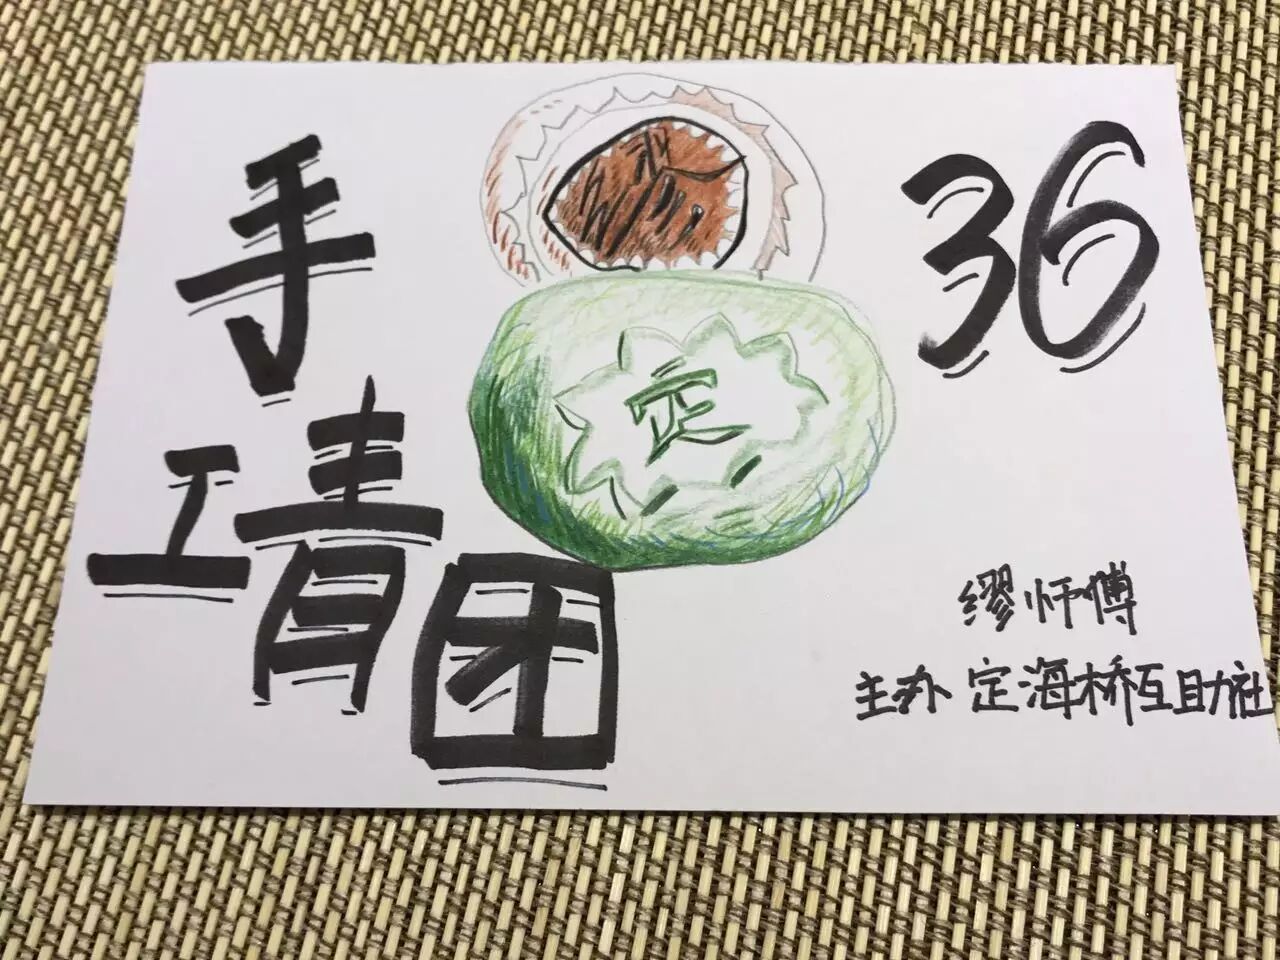 手工青团
36
定
缪师傅
主办 定海桥互助社